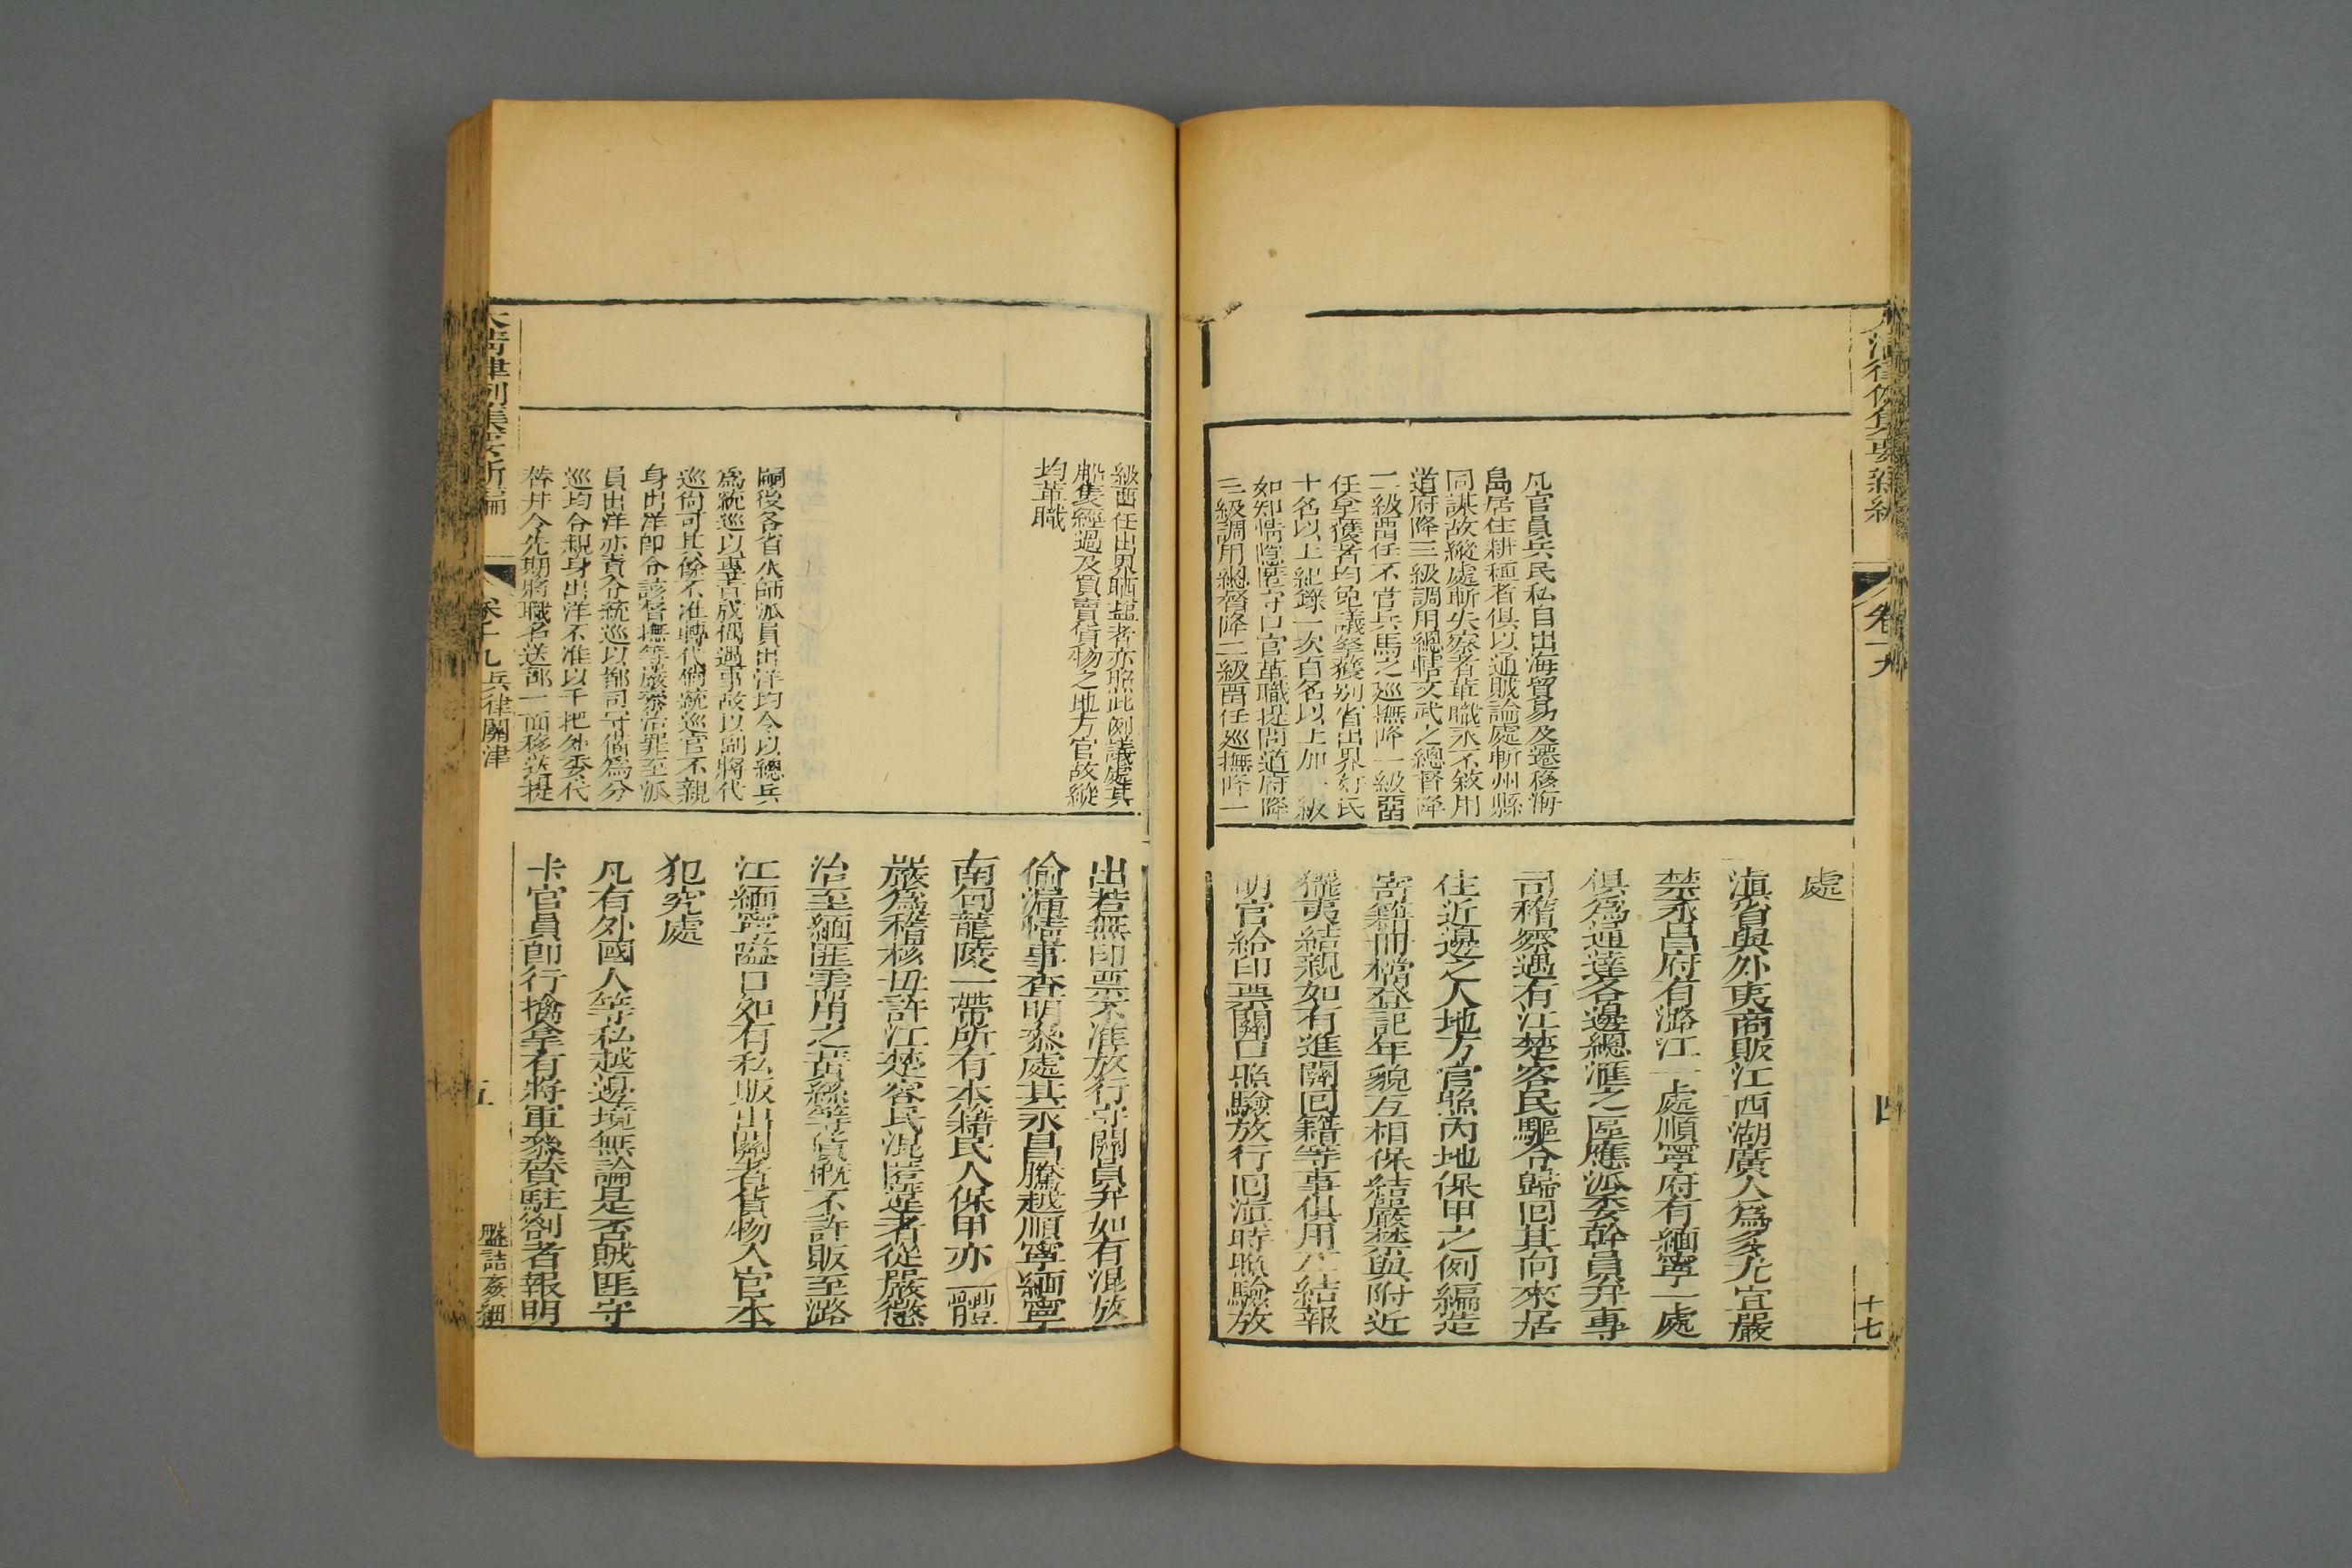 大清律例集要新編
卷十九
四
十七
凡官員兵民私自出海貿易及遷移海
島居住耕種者俱以通賊論處斬州縣
同謀故縱處斬失察者革職永不敘用
道府降三級調用總轄文武之總督降
二級畱任不管兵馬之巡撫降一級畱
任拿獲者均免議拏獲別省出界奸民
十名以上紀錄一次百名以上加一級
如知情隱匿守口官革職提問道府降
三級調用總督降二級畱任巡撫降一
處
滇省與外夷商販江西湖廣人爲多尤宜嚴
禁永昌府有潞江一處順寧府有緬寧一處
俱爲通達各邊總滙之區應派委幹員弁專
司稽察遇有江楚客民驅令歸回其向來居
住近邊之人地方官照內地保甲之例編造
寄籍冊檔登記年貌互相保結嚴禁與附近
玀夷結親如有進關回籍等事俱用互結報
明官給印票關口照驗放行回滇時照驗放
級畱任出界晒鹽者亦照此例議處其
船隻經過及買賣貨物之地方官故縱
均革職
嗣後各省水師派員出洋均令以總兵
爲統巡以專責成偶遇事故以副將代
巡尙可其餘不准轉代倘統巡官不親
身出洋卽令該督撫等嚴叅治罪至派
員出洋亦責令統巡以都司守備爲分
巡均令親身出洋不准以千把外委代
替幷令先期將職名送部一面移送提
出若無印票不准放行守關員弁如有混放
偷漏情事查明叅處其永昌騰越順寧緬寧
南甸龍陵一帶所有本籍民人保甲亦一體
嚴爲稽核毋許江楚客民混匿違者從嚴懲
治至緬匪需用之黃絲等貨槪不許販至潞
江緬寧隘口如有私販出關者貨物入官本
犯究處
凡有外國人等私越邊境無論是否賊匪守
卡官員卽行擒拿有將軍叅贊駐劄者報明
大清律例集要新編
卷十九兵律關津
五
盤詰姦細